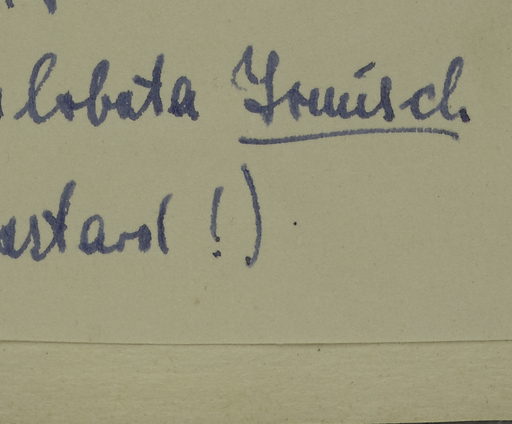 lobata Jomisch
astard !)